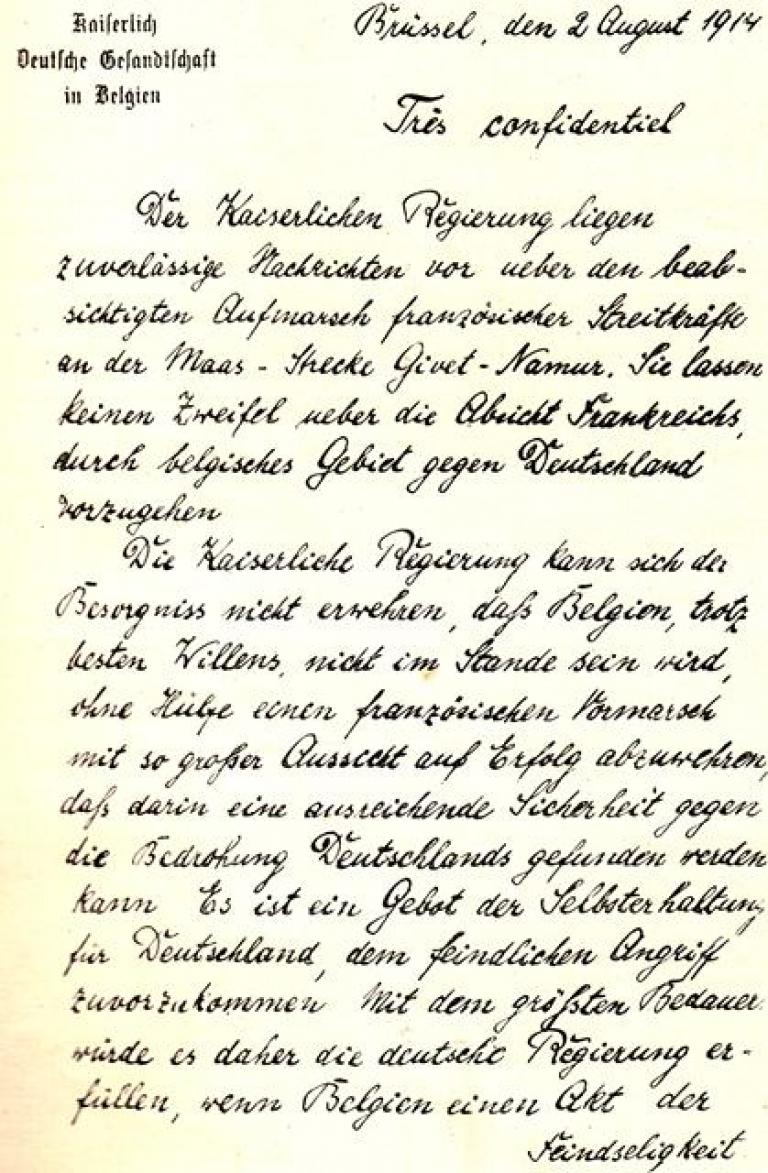 Kaiserlich
Deutsche Gesandtschaft
in Belgien
Brüssel, den 2 August 1914
Très confidentiel
Der Kaiserlichen Regierung liegen
zuverlässige Nachrichten vor ueber den beab-
sichtigten Aufmarsch französischer Streitkräfte
an der Maas - Strecke Givet - Namur. Sie lassen
keinen Zweifel ueber die Absicht Frankreichs,
durch belgisches Gebiet gegen Deutschland
vorzugehen
Die Kaiserliche Regierung kann sich der
Besorgniss nicht erwehren, daß Belgien, trotz
besten Willens, nicht im Stande sein wird,
ohne Hülfe einen französischen Vormarsch
mit so großer Aussicht auf Erfolg abzuwehren,
daß darin eine ausreichende Sicherheit gegen
die Bedrohung Deutschlands gefunden werden
kann Es ist ein Gebot der Selbsterhaltung
für Deutschland, dem feindlichen Angriff
zuvorzukommen Mit dem größten Bedauern
würde es daher die deutsche Regierung er-
füllen, wenn Belgien einen Akt der
Feindseligkeit